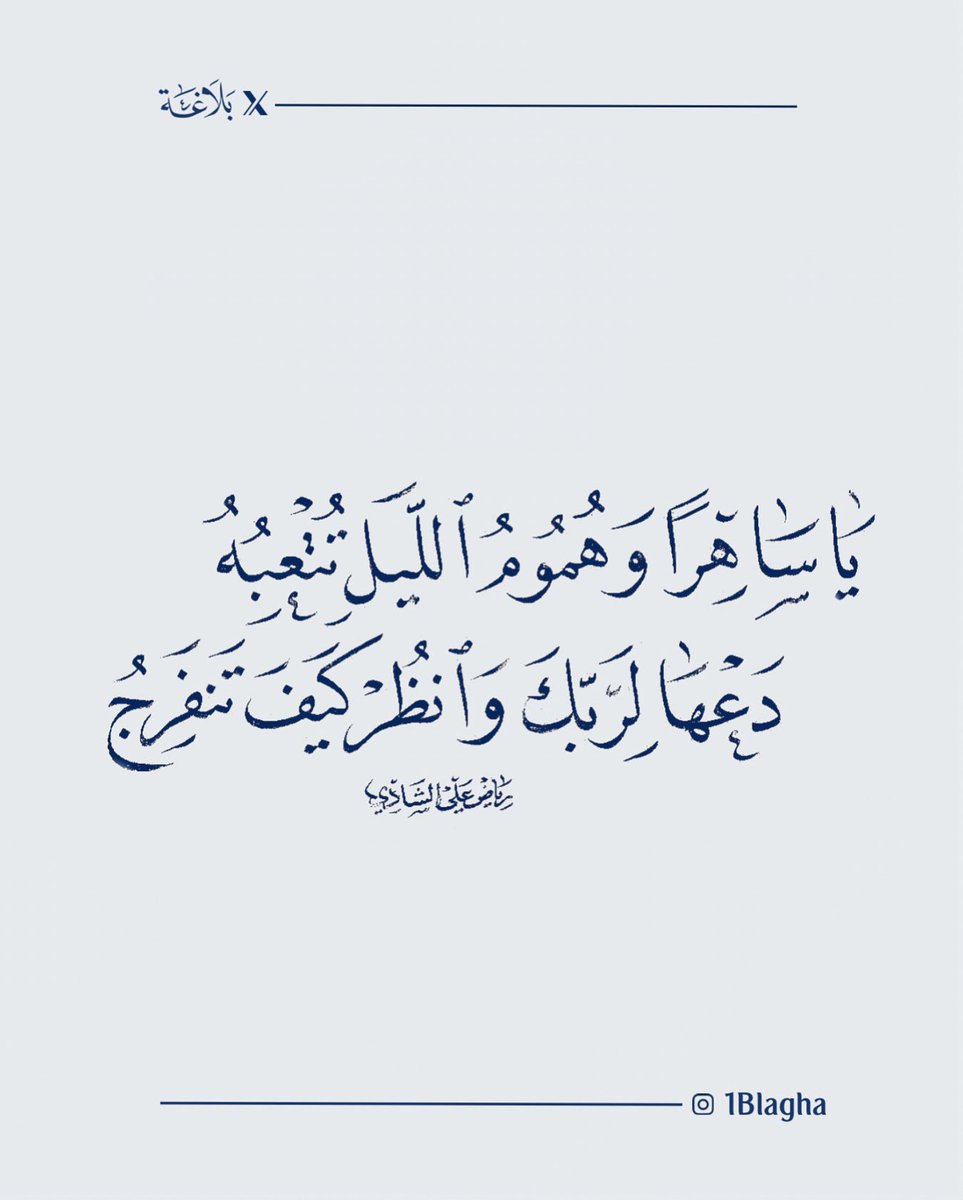 بَلَاغَة X
يَا سَاهِرًا وَهُمُومُ ٱللَّيلِ تُتْعِبُهُ
دَعْهَا لِرَبِّكَ وَٱنظُرْ كَيفَ تَنفَرِجُ
رياض علي الشاذي
1Blagha